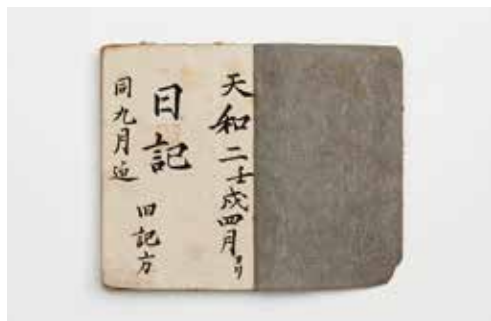 天和二壬戌四月ヨリ
日記
同九月迄
日記方